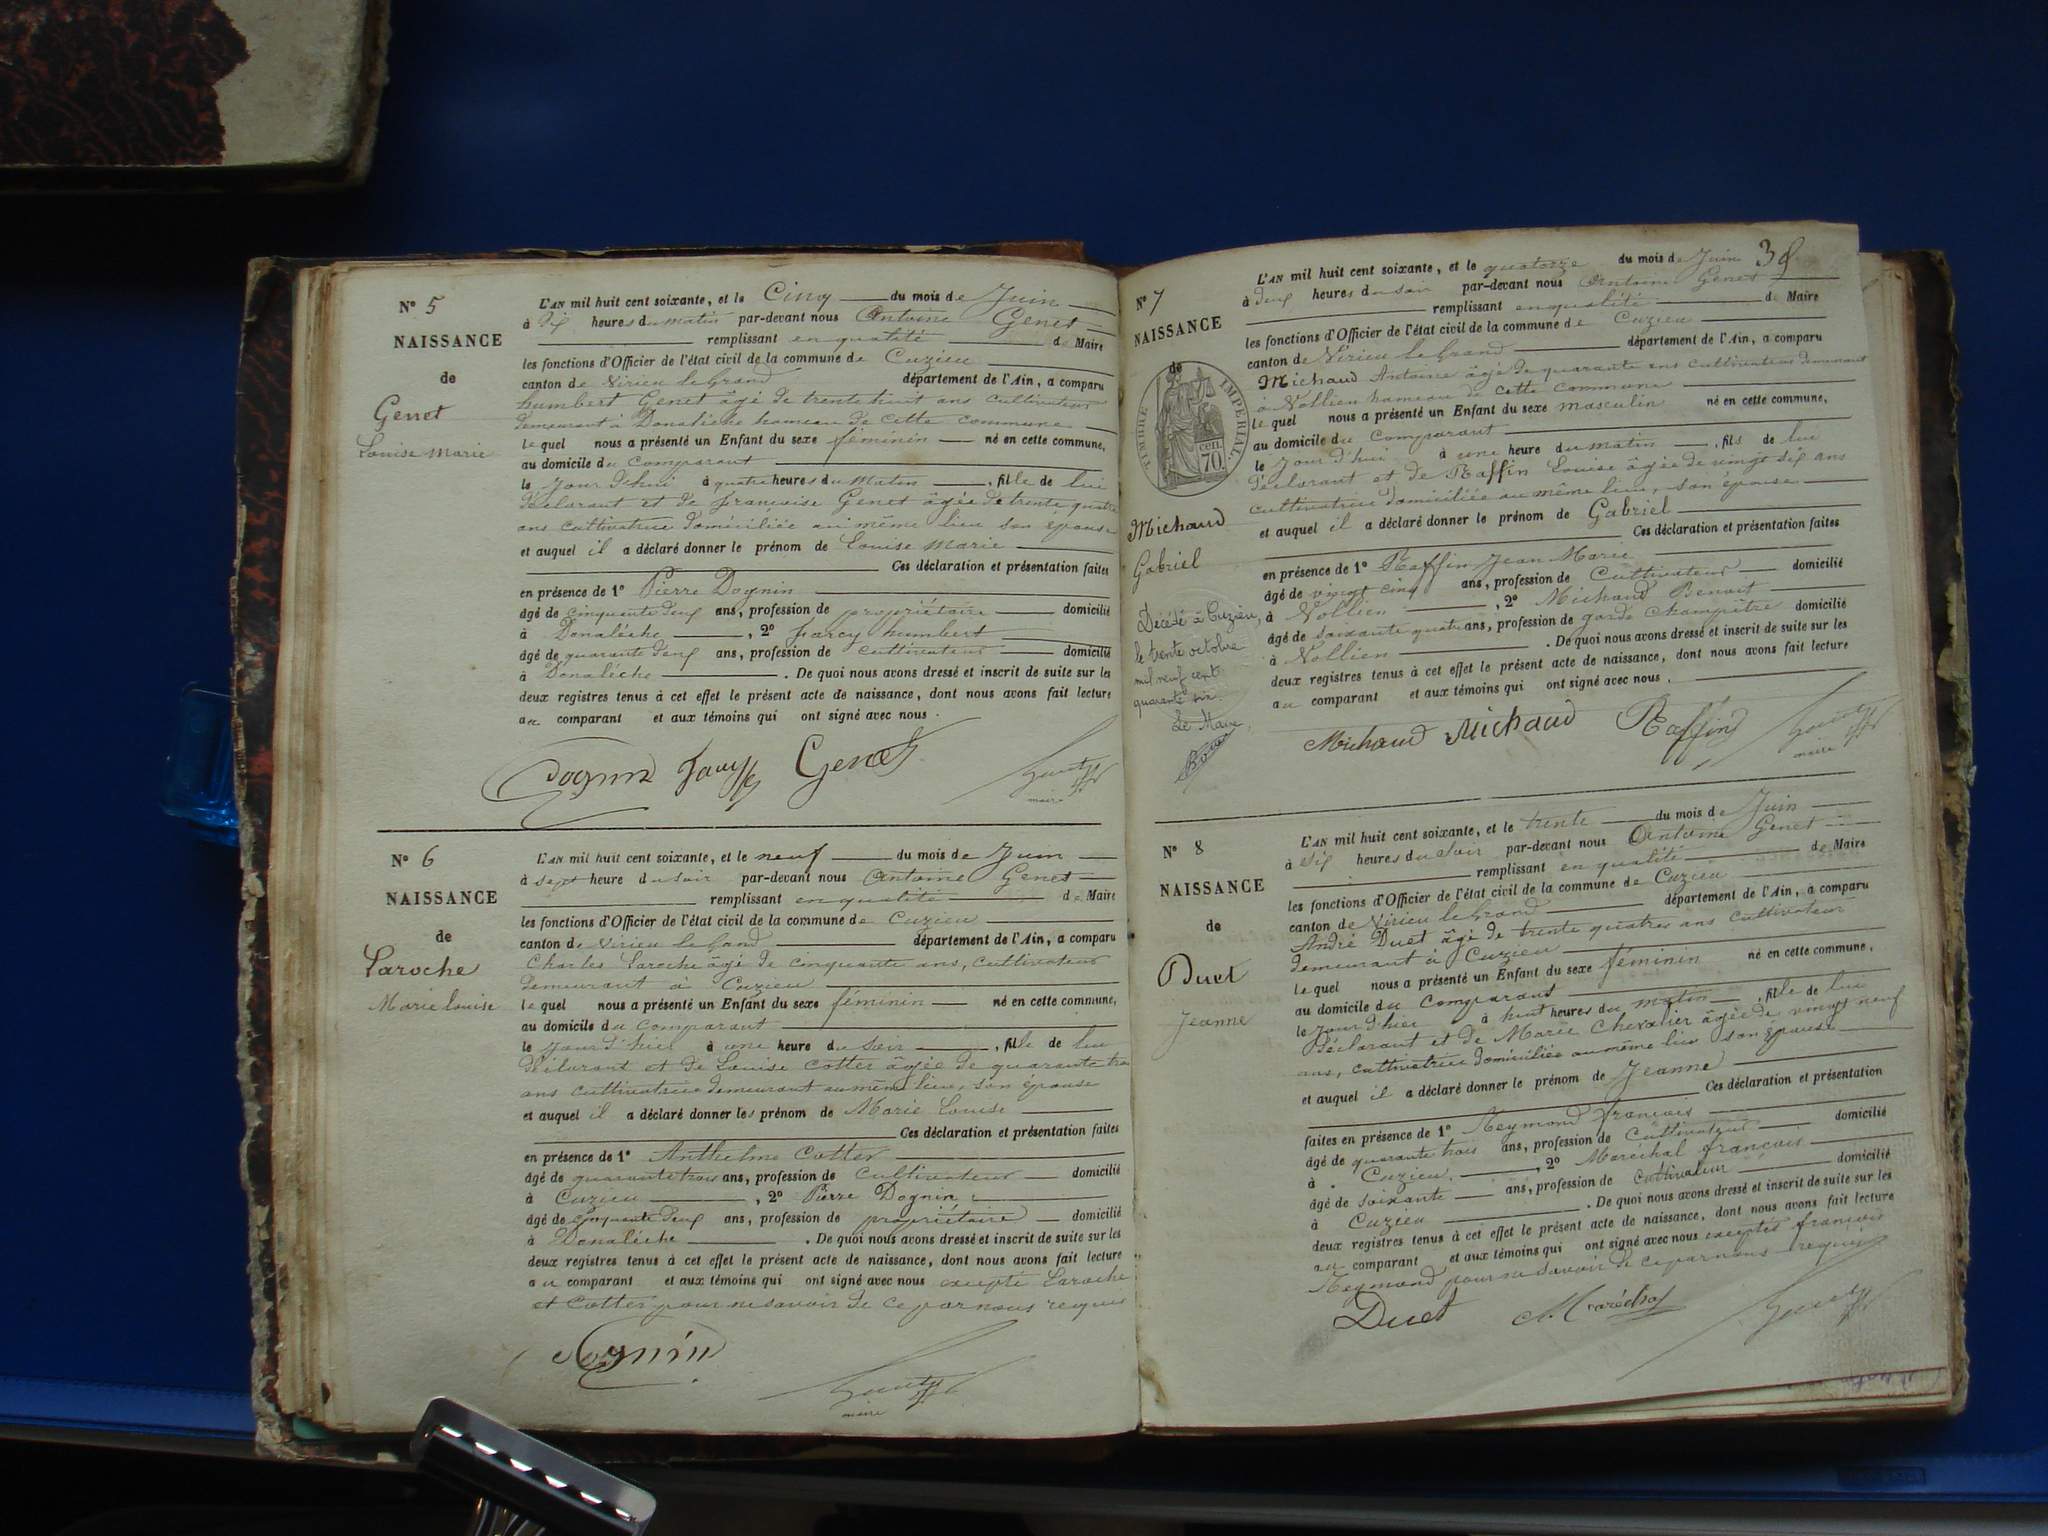 N° 5
NAISSANCE
de
Genet
Louise Marie
L'AN mil huit cent soixante, et le Cinq du mois de Juin
à dix heures du matin par-devant nous Antoine Genet
remplissant en qualité de Maire
les fonctions d'Officier de l'état civil de la commune de Cuzieu
canton de Virieu le Grand département de l'Ain, a comparu
humbert Genet âgé de trente huit ans cultivateur
demeurant à Donalèche hameau de cette commune
le quel nous a présenté un Enfant du sexe féminin né en cette commune,
au domicile du comparant
le jour d'hui à quatre heures du matin, fille de lui
déclarant et de françoise Genet âgée de trente quatre
ans cultivatrice domiciliée au même lieu son épouse
et auquel il a déclaré donner le prénom de Louise Marie
Ces déclaration et présentation faites
en présence de 1° Pierre Dognin
âgé de cinquante deux ans, profession de propriétaire domicilié
à Donalèche, 2° humbert
âgé de quarante deux ans, profession de cultivateur domicilié
à Donalèche. De quoi nous avons dressé et inscrit de suite sur les
deux registres tenus à cet effet le présent acte de naissance, dont nous avons fait lecture
au comparant et aux témoins qui ont signé avec nous.
Dognin Genet
maire
N° 6
NAISSANCE
de
Laroche
Marie Louise
L'AN mil huit cent soixante, et le neuf du mois de Juin
à sept heure du soir par-devant nous Antoine Genet
remplissant en qualité de Maire
les fonctions d'Officier de l'état civil de la commune de Cuzieu
canton de Virieu le Grand département de l'Ain, a comparu
Charles Laroche âgé de cinquante ans, cultivateur
demeurant à Cuzieu
le quel nous a présenté un Enfant du sexe féminin né en cette commune,
au domicile du comparant
le jour d'hier à une heure du soir, fille de lui
déclarant et de Louise Cotter âgée de quarante trois
ans cultivatrice demeurant au même lieu, son épouse
et auquel il a déclaré donner les prénom de Marie Louise
Ces déclaration et présentation faites
en présence de 1° Anthelme Cotter
âgé de quarante trois ans, profession de Cultivateur domicilié
à Cuzieu, 2° Pierre Dognin
âgé de cinquante deux ans, profession de propriétaire domicilié
à Donalèche. De quoi nous avons dressé et inscrit de suite sur les
deux registres tenus à cet effet le présent acte de naissance, dont nous avons fait lecture
au comparant et aux témoins qui ont signé avec nous excepté Laroche
et Cotter pour ne savoir de ce par nous requis
Dognin
maire
38
N° 7
NAISSANCE
de
TIMBRE IMPERIAL
70 cen.
Michaud
Gabriel
Décédé à Cuzieu,
le trente octobre
mil neuf cent
quarante six.
Le Maire,
L'AN mil huit cent soixante, et le quatorze du mois de Juin
à deux heures du soir par-devant nous Antoine Genet
remplissant en qualité de Maire
les fonctions d'Officier de l'état civil de la commune de Cuzieu
canton de Virieu le Grand département de l'Ain, a comparu
Michaud Antoine âgé de quarante ans cultivateur demeurant
à Vollien hameau de cette commune
le quel nous a présenté un Enfant du sexe masculin né en cette commune,
au domicile du comparant
le jour d'hui à une heure du matin, fils de lui
déclarant et de Raffin Louise âgée de vingt six ans
cultivatrice domiciliée au même lieu, son épouse
et auquel il a déclaré donner le prénom de Gabriel
Ces déclaration et présentation faites
en présence de 1° Raffin Jean Marie
âgé de vingt cinq ans, profession de Cultivateur domicilié
à Vollien, 2° Michaud Benoit
âgé de soixante quatre ans, profession de garde champêtre domicilié
à Vollien. De quoi nous avons dressé et inscrit de suite sur les
deux registres tenus à cet effet le présent acte de naissance, dont nous avons fait lecture
au comparant et aux témoins qui ont signé avec nous.
Michaud Michaud Raffin
maire
N° 8
NAISSANCE
de
Duet
Jeanne
L'AN mil huit cent soixante, et le trente du mois de Juin
à six heures du soir par-devant nous Antoine Genet
remplissant en qualité de Maire
les fonctions d'Officier de l'état civil de la commune de Cuzieu
canton de Virieu le Grand département de l'Ain, a comparu
André Duet âgé de trente quatres ans cultivateur
demeurant à Cuzieu
le quel nous a présenté un Enfant du sexe féminin né en cette commune,
au domicile du comparant
le jour d'hier à huit heures du matin, fille de lui
déclarant et de Marie Chevalier âgée de vingt neuf
ans, cultivatrice domiciliée au même lieu son épouse
et auquel il a déclaré donner le prénom de Jeanne
Ces déclaration et présentation
faites en présence de 1° Reymond françois
âgé de quarante trois ans, profession de Cultivateur domicilié
à Cuzieu, 2° Maréchal françois
âgé de soixante ans, profession de cultivateur domicilié
à Cuzieu. De quoi nous avons dressé et inscrit de suite sur les
deux registres tenus à cet effet le présent acte de naissance, dont nous avons fait lecture
au comparant et aux témoins qui ont signé avec nous exceptés françois
Reymond pour ne savoir de ce par nous requis
Duet Maréchal